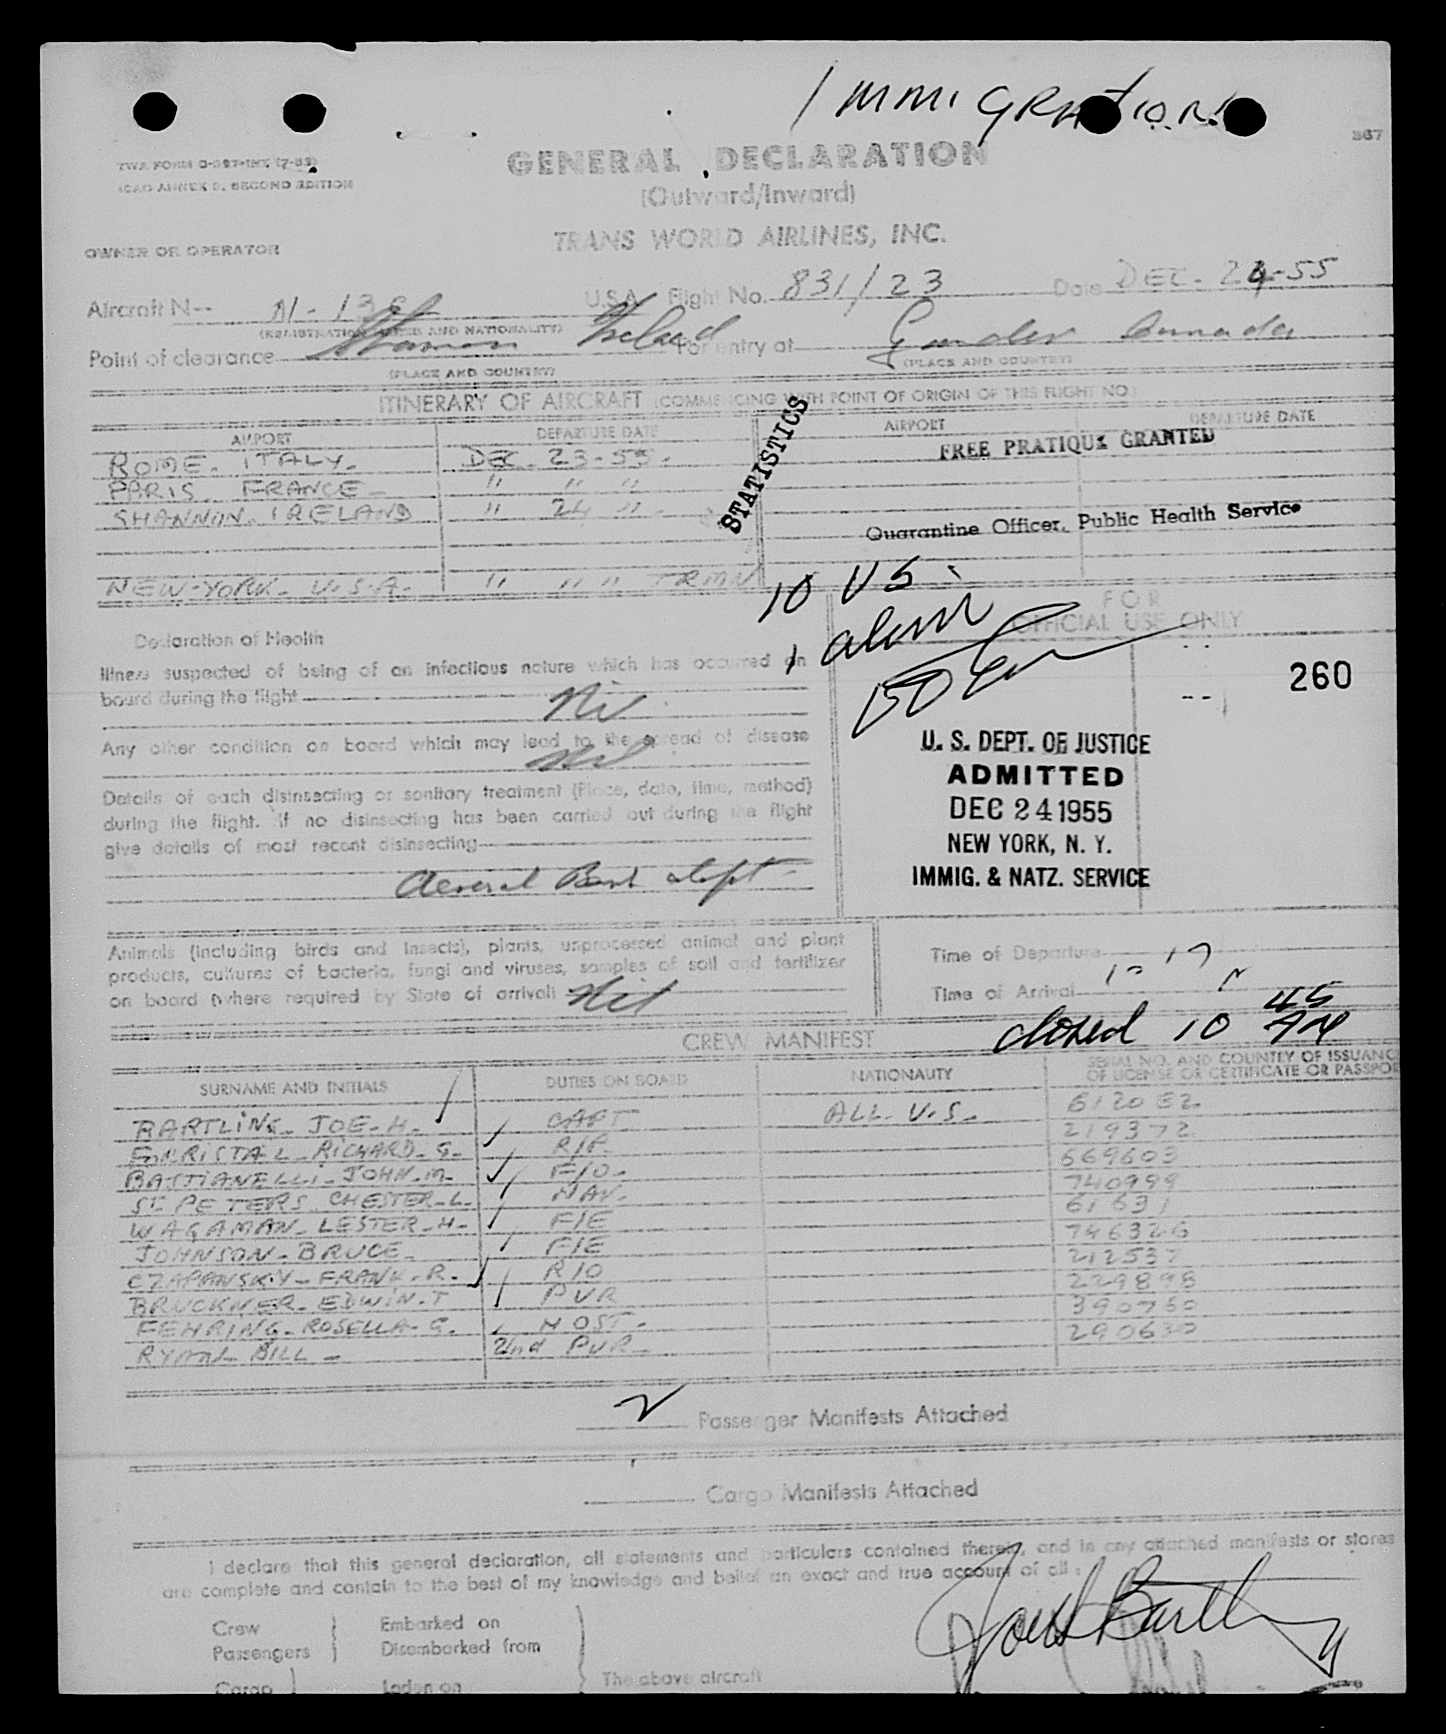 IMMIGRATION
367
TWA FORM
ICAO ANNEX 9, SECOND EDITION
GENERAL DECLARATION
(Outward/Inward)
TRANS WORLD AIRLINES, INC.
OWNER OR OPERATOR
Aircraft N-- U.S.A. Flight No. 831/23 Date DEC. 24-55
(REGISTRATION AND NATIONALITY)
Point of clearance Shannon Ireland For entry at Gander Canada
(PLACE AND COUNTRY) (PLACE AND COUNTRY)
ITINERARY OF AIRCRAFT (COMMENCING WITH POINT OF ORIGIN OF THIS FLIGHT NO.)
AIRPORT DEPARTURE DATE AIRPORT DEPARTURE DATE
ROME. ITALY. DEC. 23-55.
PARIS. FRANCE " " "
SHANNON. IRELAND " 24 "
NEW-YORK. U.S.A. " " " TRMN
STATISTICS
FREE PRATIQUE GRANTED
Quarantine Officer, Public Health Service
10 US
1 alien
FOR
OFFICIAL USE ONLY
260
U. S. DEPT. OF JUSTICE
ADMITTED
DEC 24 1955
NEW YORK, N. Y.
IMMIG. & NATZ. SERVICE
Declaration of Health
Illness suspected of being of an infectious nature which has occurred on
board during the flight Nil
Any other condition on board which may lead to the spread of disease
Nil
Details of each disinsecting or sanitary treatment (Place, date, time, method)
during the flight. If no disinsecting has been carried out during the flight
give details of most recent disinsecting
Animals (including birds and insects), plants, unprocessed animal and plant
products, cultures of bacteria, fungi and viruses, samples of soil and fertilizer
on board (where required by State of arrival) Nil
Time of Departure
Time of Arrival
closed 10 45 AM
CREW MANIFEST
SURNAME AND INITIALS DUTIES ON BOARD NATIONALITY SERIAL NO. AND COUNTRY OF ISSUANC
OF LICENSE OR CERTIFICATE OR PASSPOR
BARTLING. JOE. H. CAPT ALL U.S. 6120 E2
RICHARD. G. 219372
BASTIANELLI. JOHN. M. F/O. 669603
ST PETERS. CHESTER. L. NAV. 740999
WAGAMAN. LESTER. H. F/E 61631
JOHNSON. BRUCE. F/E 746326
CZAPANSKY. FRANK. R. R/O 212537
BRUCKNER. EDWIN. T PUR 229898
FEHRING. ROSELLA. G. HOST. 390760
RYAN. BILL 2nd PUR 290630
2 Passenger Manifests Attached
Cargo Manifests Attached
I declare that this general declaration, all statements and particulars contained therein, and in any attached manifests or stores
are complete and contain to the best of my knowledge and belief an exact and true account of all :
Crew Embarked on
Passengers Disembarked from
Cargo Laden on The above aircraft